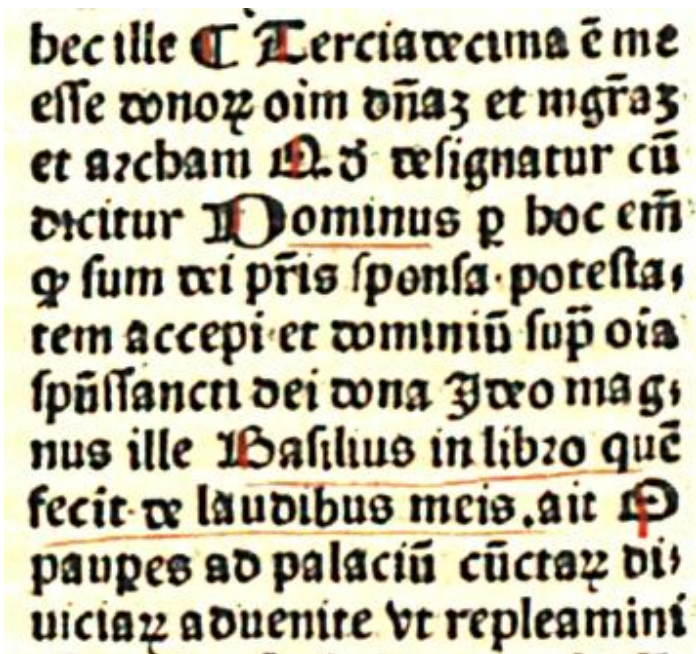 hec ille ¶ Terciadecima ē me
esse donoꝝ oīm dn̄aꝫ et mgr̄aꝫ
et archam M. ꝺ̄ designatur cū
dicitur Dominus ꝑ hoc em̄
ꝙ sum dei pr̄is sponsa·potesta⸗
tem accepi et dominiū sup̄ oīa
spūssancti dei dona Ideo mag⸗
nus ille Basilius in libro quē
fecit de laudibus meis.ait O
pauꝑes ad palaciū cūctaꝝ di⸗
uiciaꝝ aduenite vt repleamini